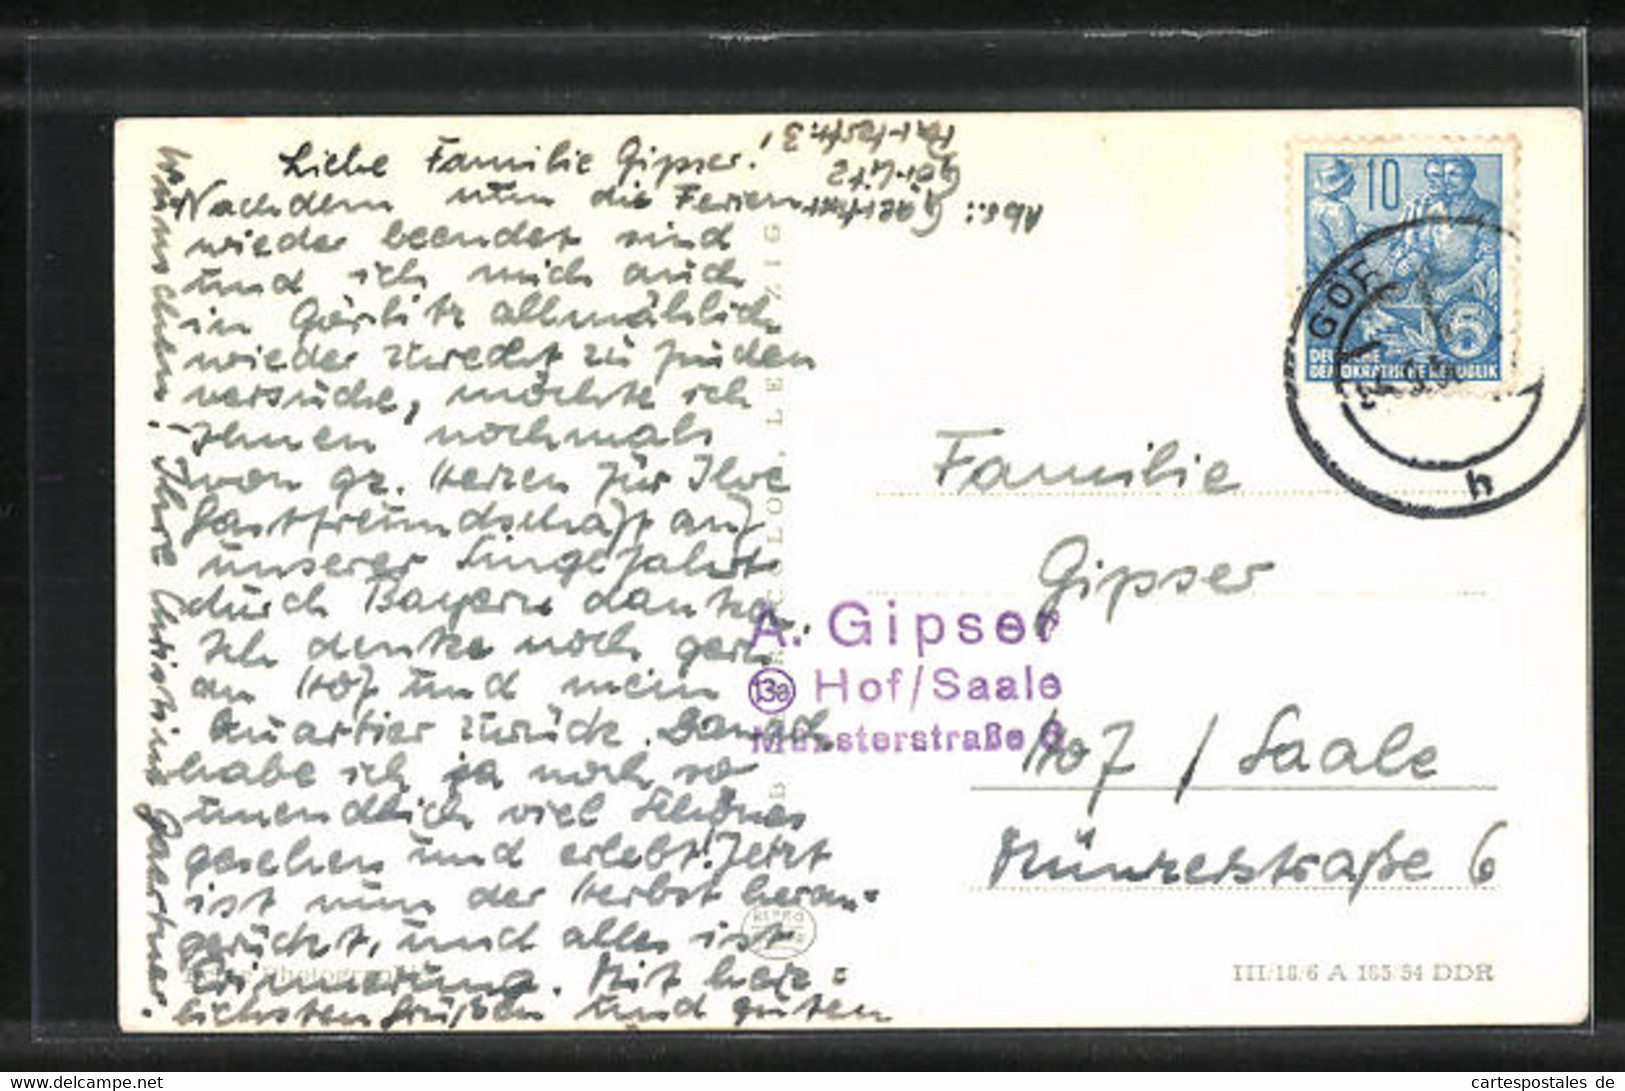 Liebe Familie Gipser!
Nachdem nun die Ferien
wieder beendet sind
und ich mich auch
in Görlitz allmählich
wieder zurecht zu finden
versuche, möchte ich
Ihnen nochmals
von gz. Herzen für Ihre
Gastfreundschaft auf
unserer Singefahrt
durch Bayern danken.
Ich denke noch gern
an Hof und mein
Quartier zurück. Danach
habe ich ja noch so
unendlich viel Schönes
gesehen und erlebt. Jetzt
ist nun der Herbst heran=
gerückt, und alles ist
Erinnerung. Mit herz=
lichsten Grüßen und guten
Wünschen! Ihre Christine Gaertner.
Abs.: Gaertner
Görlitz
10
DEUTSCHE
DEMOKRATISCHE REPUBLIK
5
GÖR
h
Familie
Gipser
Hof / Saale
Münzerstraße 6
A. Gipser
13a Hof/Saale
Münsterstraße 6
III/18/6 A 185/54 DDR
cartespostales de
https://www.cartespostales.de